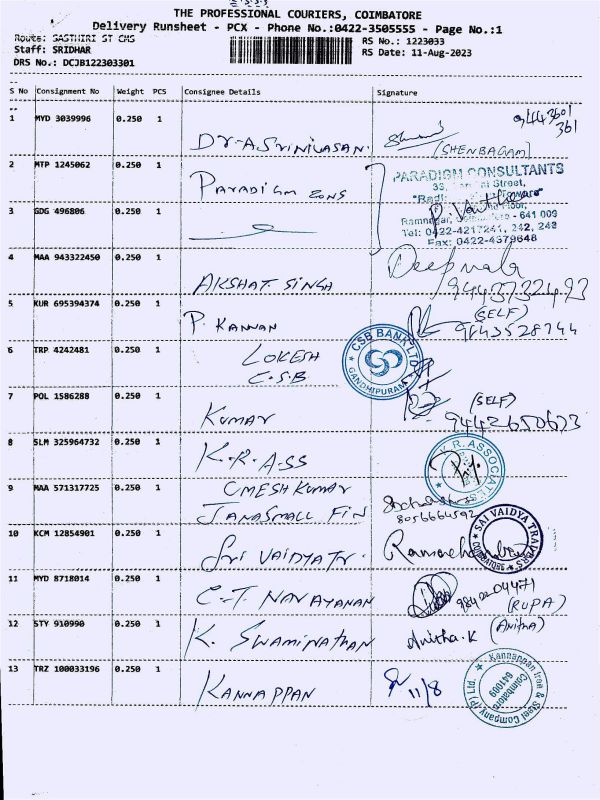 THE PROFESSIONAL COURIERS, COIMBATORE
Delivery Runsheet - PCX - Phone No.:0422-3505555 - Page No.:1
Route: SASTHIRI ST CMS
RS No.: 1223033
Staff: SRIDHAR
RS Date: 11-Aug-2023
DRS No.: DCJB122303301
S No Consignment No Weight PCS Consignee Details Signature
1 MYD 3039996 0.250 1 Dr. A. Srinivasan. (SHENBAGAM) 9443601 361
2 MTP 1245062 0.250 1 Paradigm Zons
PARADIGM CONSULTANTS
Street,
3 GDG 496806 0.250 1
Ramnagar, - 641 009
Tel: 0422-4217241, 242, 243
Fax: 0422-4379648
4 MAA 943322450 0.250 1 AKSHAT SINGH Deepmala
9443732493
5 KUR 695394374 0.250 1 P. KANNAN (SELF)
9843528744
6 TRP 4242481 0.250 1 LOKESH
C.S.B.
CSB BANK LTD. GANDHIPURAM
7 POL 1586288 0.250 1 KUMAR (SELF)
9442650673
8 SLM 325964732 0.250 1 K.R. ASS
K.R. ASSOCIATES
9 MAA 571317725 0.250 1 UMESH KUMAR
JANASMALL FIN 8056664592
10 KCM 12854901 0.250 1 SRI VAIDYA TR.
SAI VAIDYA TRAVELS COIMBATORE
11 MYD 8718014 0.250 1 C.T. NARAYANAN (RUPA)
12 STY 910990 0.250 1 K. SWAMINATHAN Anitha.K (Anitha)
13 TRZ 100033196 0.250 1 KANNAPPAN 11/8
Kannappan Iron & Steel Company (P) Ltd. Coimbatore 641009